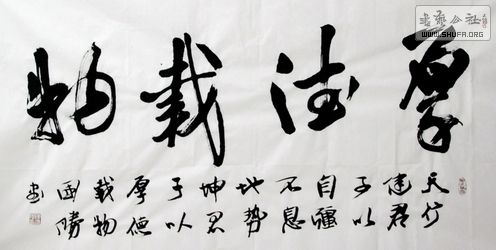 厚德載物
天行
健君
子以
自疆
不息
地勢
坤君
子以
厚德
載物
勝
书
书艺公社
WWW.SHUFA.ORG